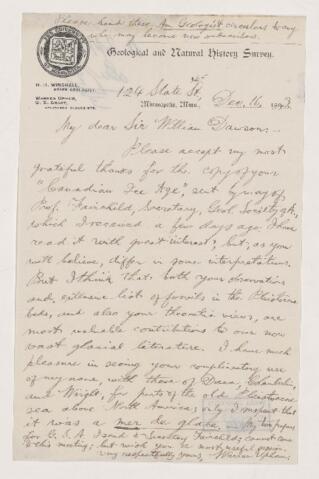 Please hand these Am. Geologist circulars to any
who may become new subscribers.
Geological and Natural History Survey.
N. H. WINCHELL,
STATE GEOLOGIST.
WARREN UPHAM,
U. S. GRANT,
ASSISTANT GEOLOGISTS.
124 State St.,
Minneapolis, Minn., Dec. 16, 1893
My dear Sir William Dawson:
Please accept my most
grateful thanks for the copy of your
"Canadian Ice Age" sent by way of
Prof. Fairchild, Secretary, Geol. Society of A.,
which I received a few days ago. I have
read it with great interest; but, as you
will believe, differ in some interpretations.
But I think that both your observations
and extensive list of fossils in the Pleistocene
beds, and also your theoretic views, are
most valuable contributions to our now
vast glacial literature. I have much
pleasure in seeing your complimentary use
of my name, with those of Dana, Chamberlin,
and Wright, for parts of the old Pleistocene
sea above North America; only I suspect that
it was a mer de glace. My two papers
for G. S. A. I send to Secretary Fairchild; cannot come
to this meeting; but wish you a most useful session.
Very respectfully yours, Warren Upham.